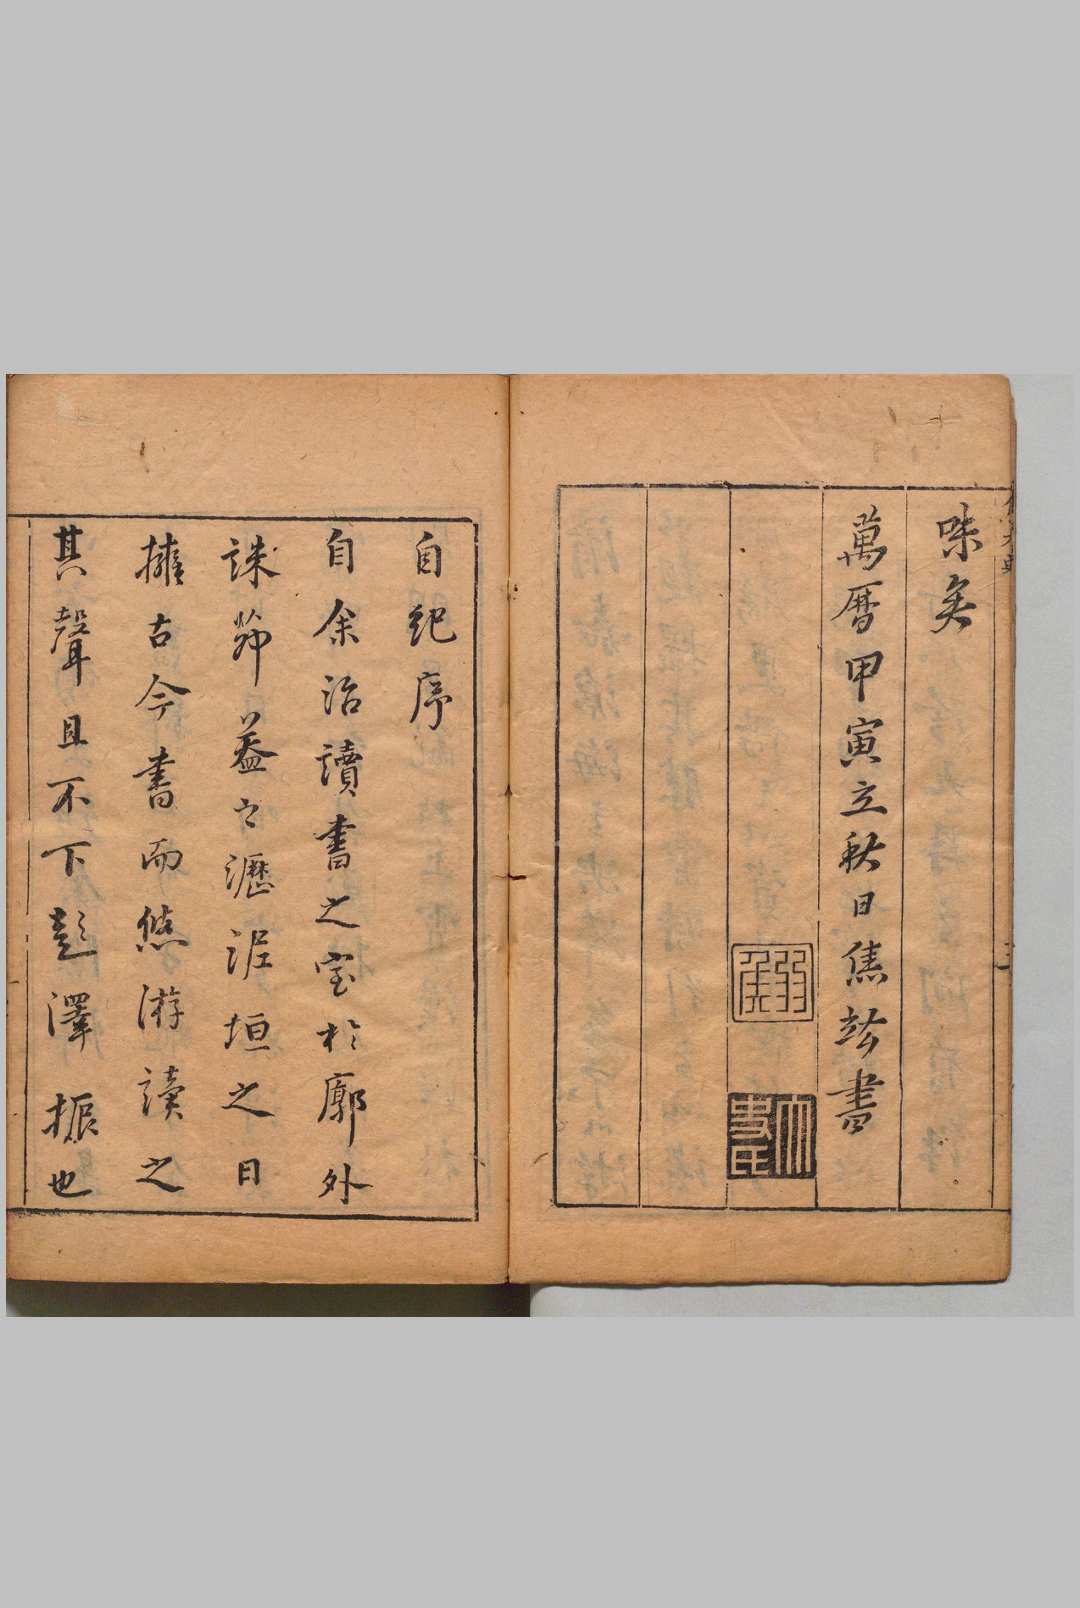 味矣
萬曆甲寅立秋日焦竑書
弱侯
太史氏
自紀序
自余治讀書之室於廓外
誅茆蓋瓦瀝泥垣之日
擁古今書而悠游讀之
其聲且不下彭澤振也